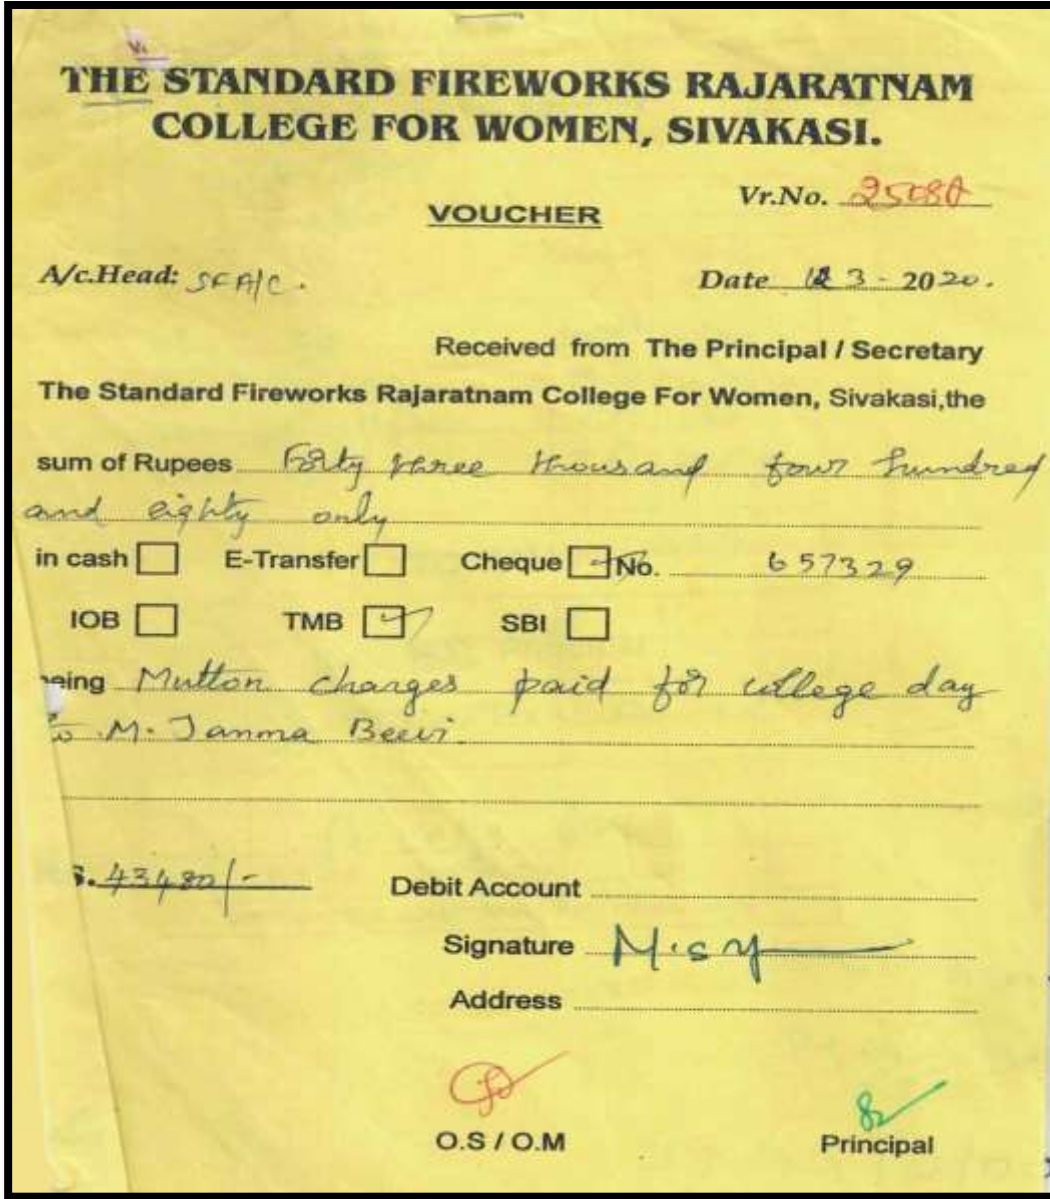 THE STANDARD FIREWORKS RAJARATNAM
COLLEGE FOR WOMEN, SIVAKASI.
Vr.No.
VOUCHER
A/c.Head: SF A/C.
Date 3 - 2020.
Received from The Principal / Secretary
The Standard Fireworks Rajaratnam College For Women, Sivakasi,the
sum of Rupees Forty three thousand four hundred
and eighty only
in cash E-Transfer Cheque No. 657329
IOB TMB SBI
eing Mutton charges paid for college day
to M. Janma Beevi
s. 43480/-
Debit Account
Signature
Address
O.S / O.M
Principal